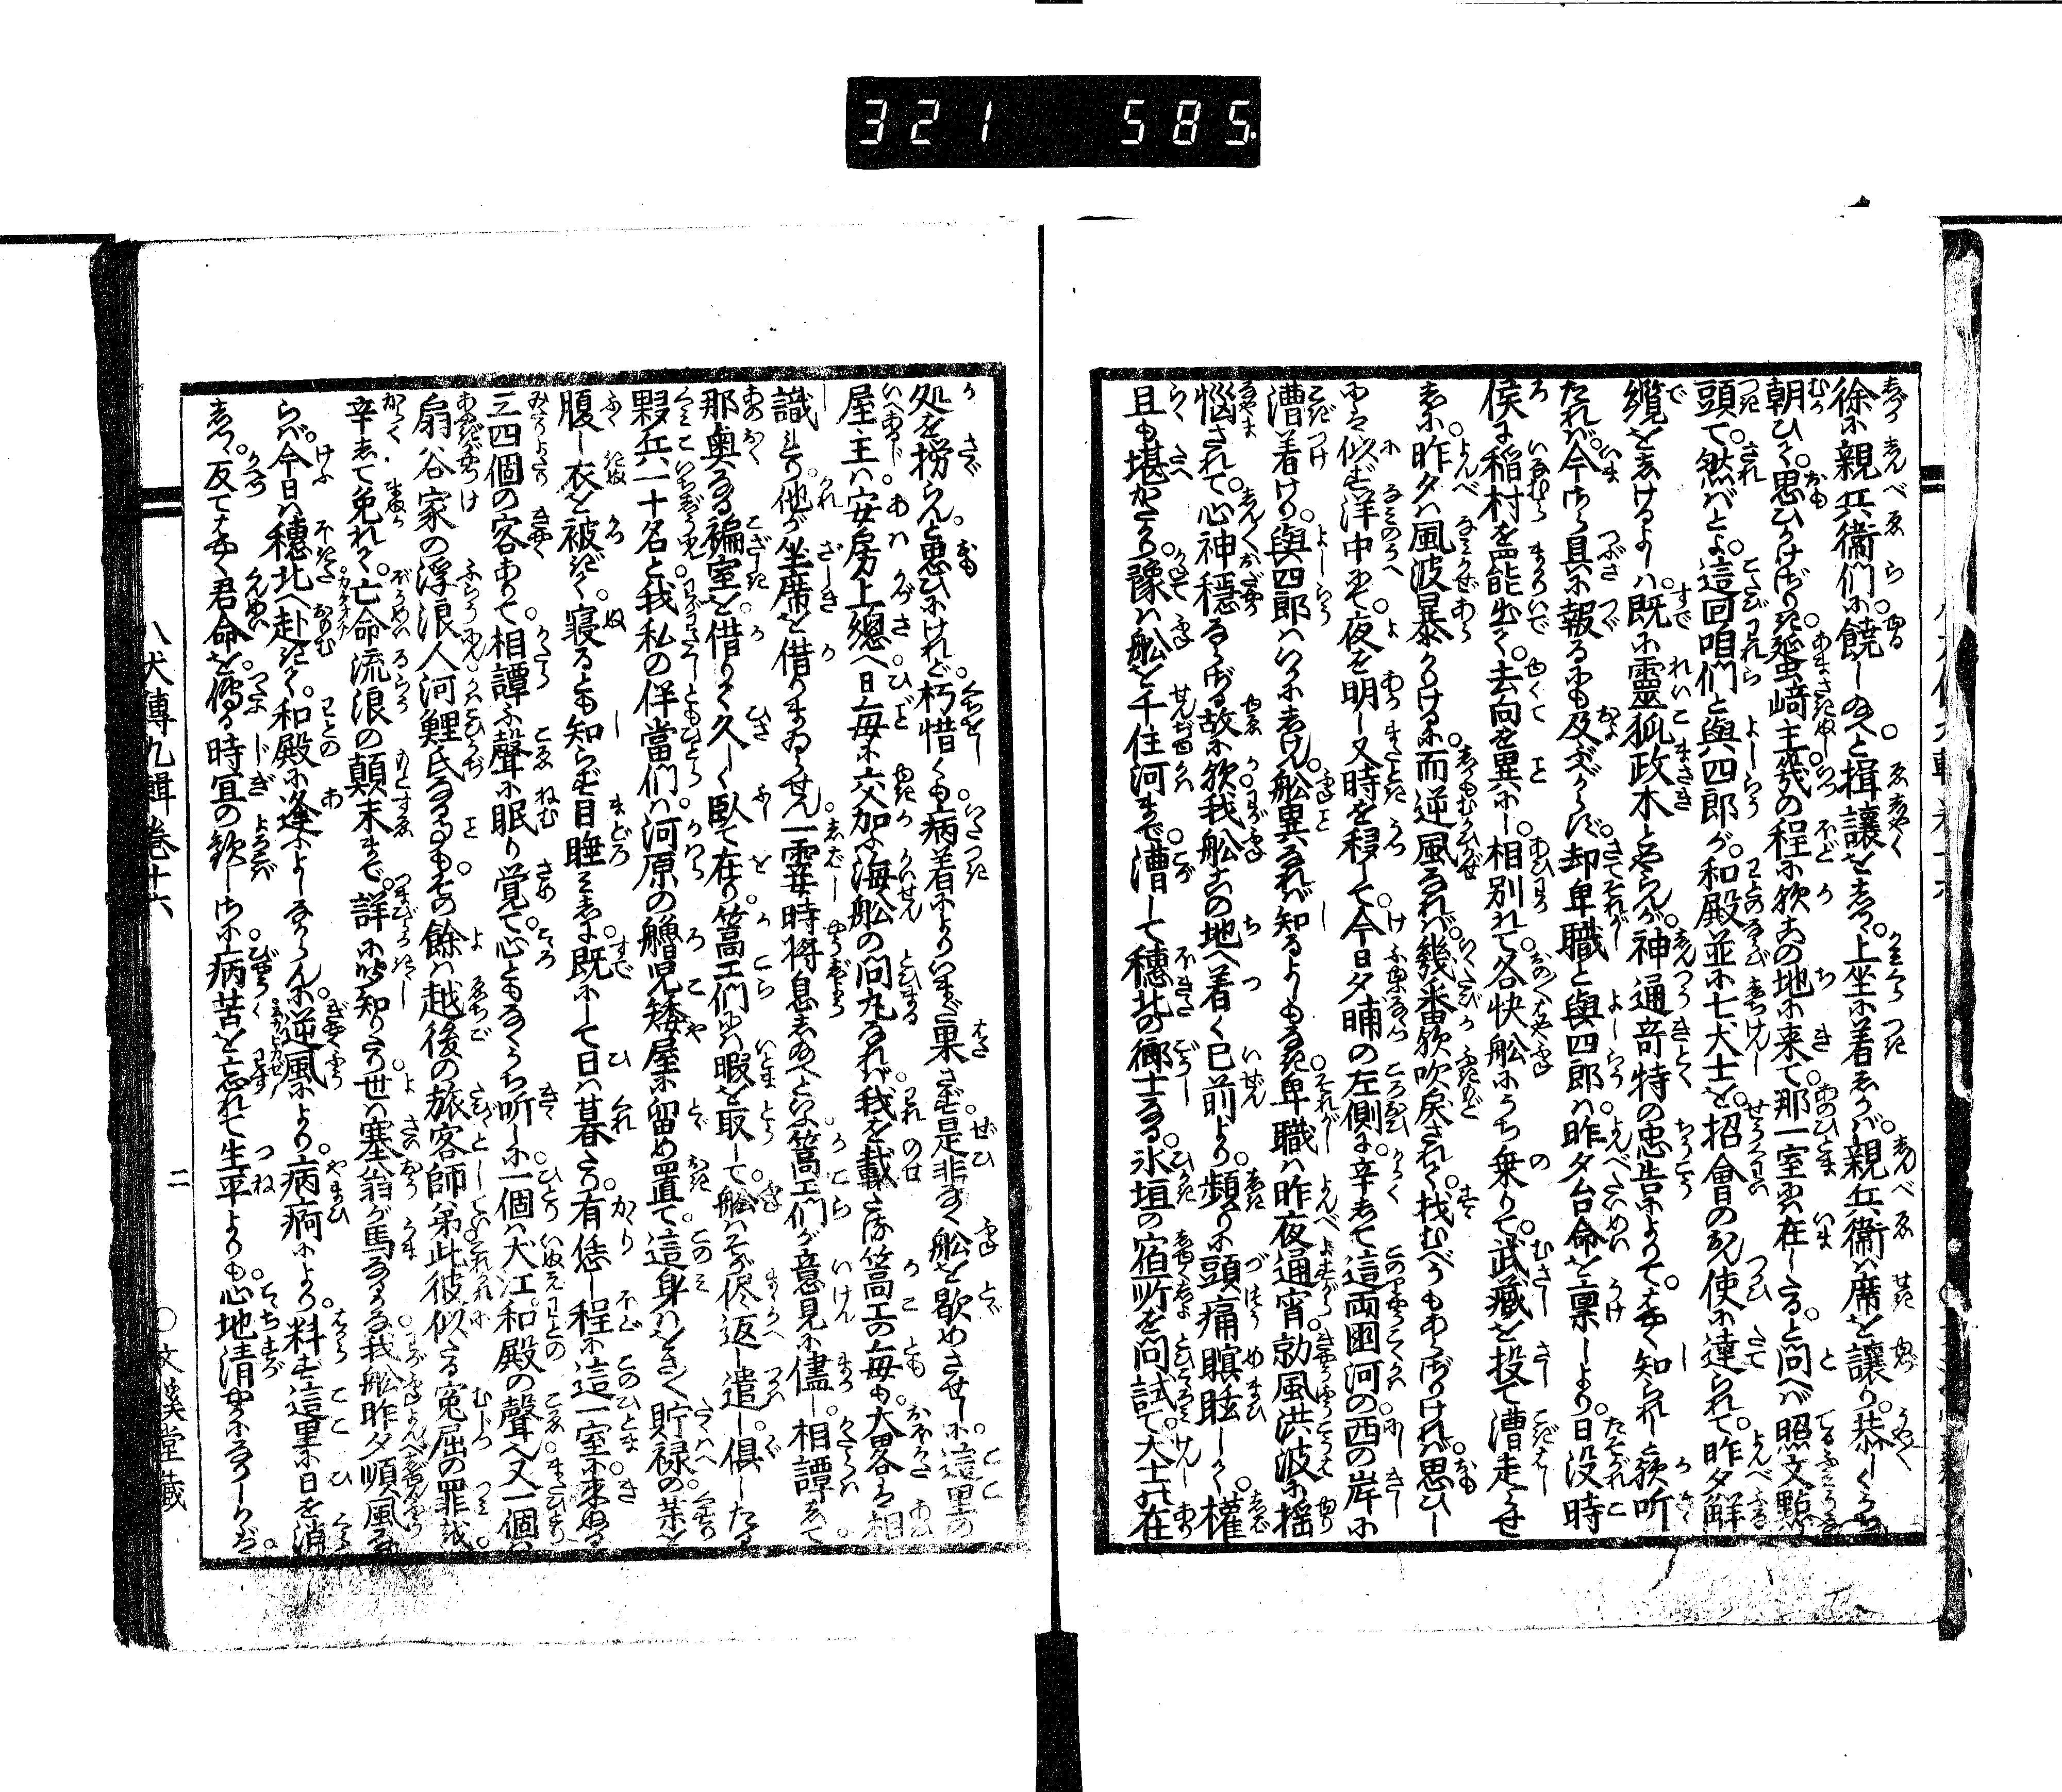 321 585
徐に親兵衛們に饒しのへと揖讓をしつ。上坐に着しかば。親兵衛は席を讓り。恭しくうち
朝ひて。思ひかけぢき蜑崎主。幾の程に歟。這の地に来て。那一室には在したる。と問へば照文點
頭て。然ばとよ。這回咱們と與四郎が。和殿並に七犬士を。招會のおん使に達られて。昨夕解
纜をしけるよしは。既に靈狐政木とやらんが。神通奇特の忠告によりて。はやく知られしと歟听
たれば。今さら具に報るにも及ぶべからず。却卑職と與四郎は。昨夕台命を稟しより。日没時
候に稲村を罷出て。去向を異にし。相別れて。各快舩にうち乗りて。武藏を投て漕走らせ
しに。昨夕は風波暴かりけるに。而逆風なれば。幾番歟吹戻されて。找むべうもあらざりければ。思ひ
にも似ず洋中にて。夜を明し又時を移して。今日夕晡の左側に。辛して這両国河の西の岸に
漕着けり。與四郎はいかにしけん。舩異なれば知るよしもなき。卑職は昨夜通宵。勍風洪波に搖
惱されて。心神穏ならざる故に歟。我舩這の地へ着く已前より。頻りに頭痛瞑眩しく。權
且も堪がたかり。豫は舩を千住河まで漕して。穂北の郷士なる。氷垣の宿所を問試て。犬士の在
処を撈らんと思ひにけれど。朽惜くも病着によりいまだ果さず。是非なく舩を歇めさせしに。這里の
屋主は安房上總へ。日毎に交加ふ海舩の問丸なれば。我を載たる篙工の毎も。大畧は相
識にて。他が坐席を借りまゐらせん。一霎時将息し給へといふ。篙工們が意見に儘し。相譚して
那奥なる褊室を借りて。久しく臥て在り。篙工們には暇を取して。舩はそが侭返し遣し。倶したる
夥兵一十名と。我私の伴當們は。河原の艚児矮屋に留め置て。這身はをさ〳〵貯禄の茶を
腹し衣を被ぎて。寝るとも知らず目睡みしに。既にして日は暮たり。有恁し程に這一室に来ぬる
三四個の客ありて。相譚ふ聲に眠り覚て。心ともなくうち听しに。一個は犬江和殿の聲。又一個は
扇谷家の浮浪人河鯉氏なる事も。その餘は越後の旅客師弟。此彼似たる寃屈の罪を。
辛して免れて。亡命流浪の顛末まで。詳に听知りたり。世は塞翁が馬なるかな。我舩昨夕順風なら
らば。今日は穂北へ赴きて。和殿に逢ふよしなからんに。逆風により。病痾により。料ず這里に日を消
しつ。反てはやく君命を。傳る時宜の歡しさに。病苦を忘れて生平よりも。心地清やかになりしかば。
八犬傳九輯卷十六
二
○文溪堂藏